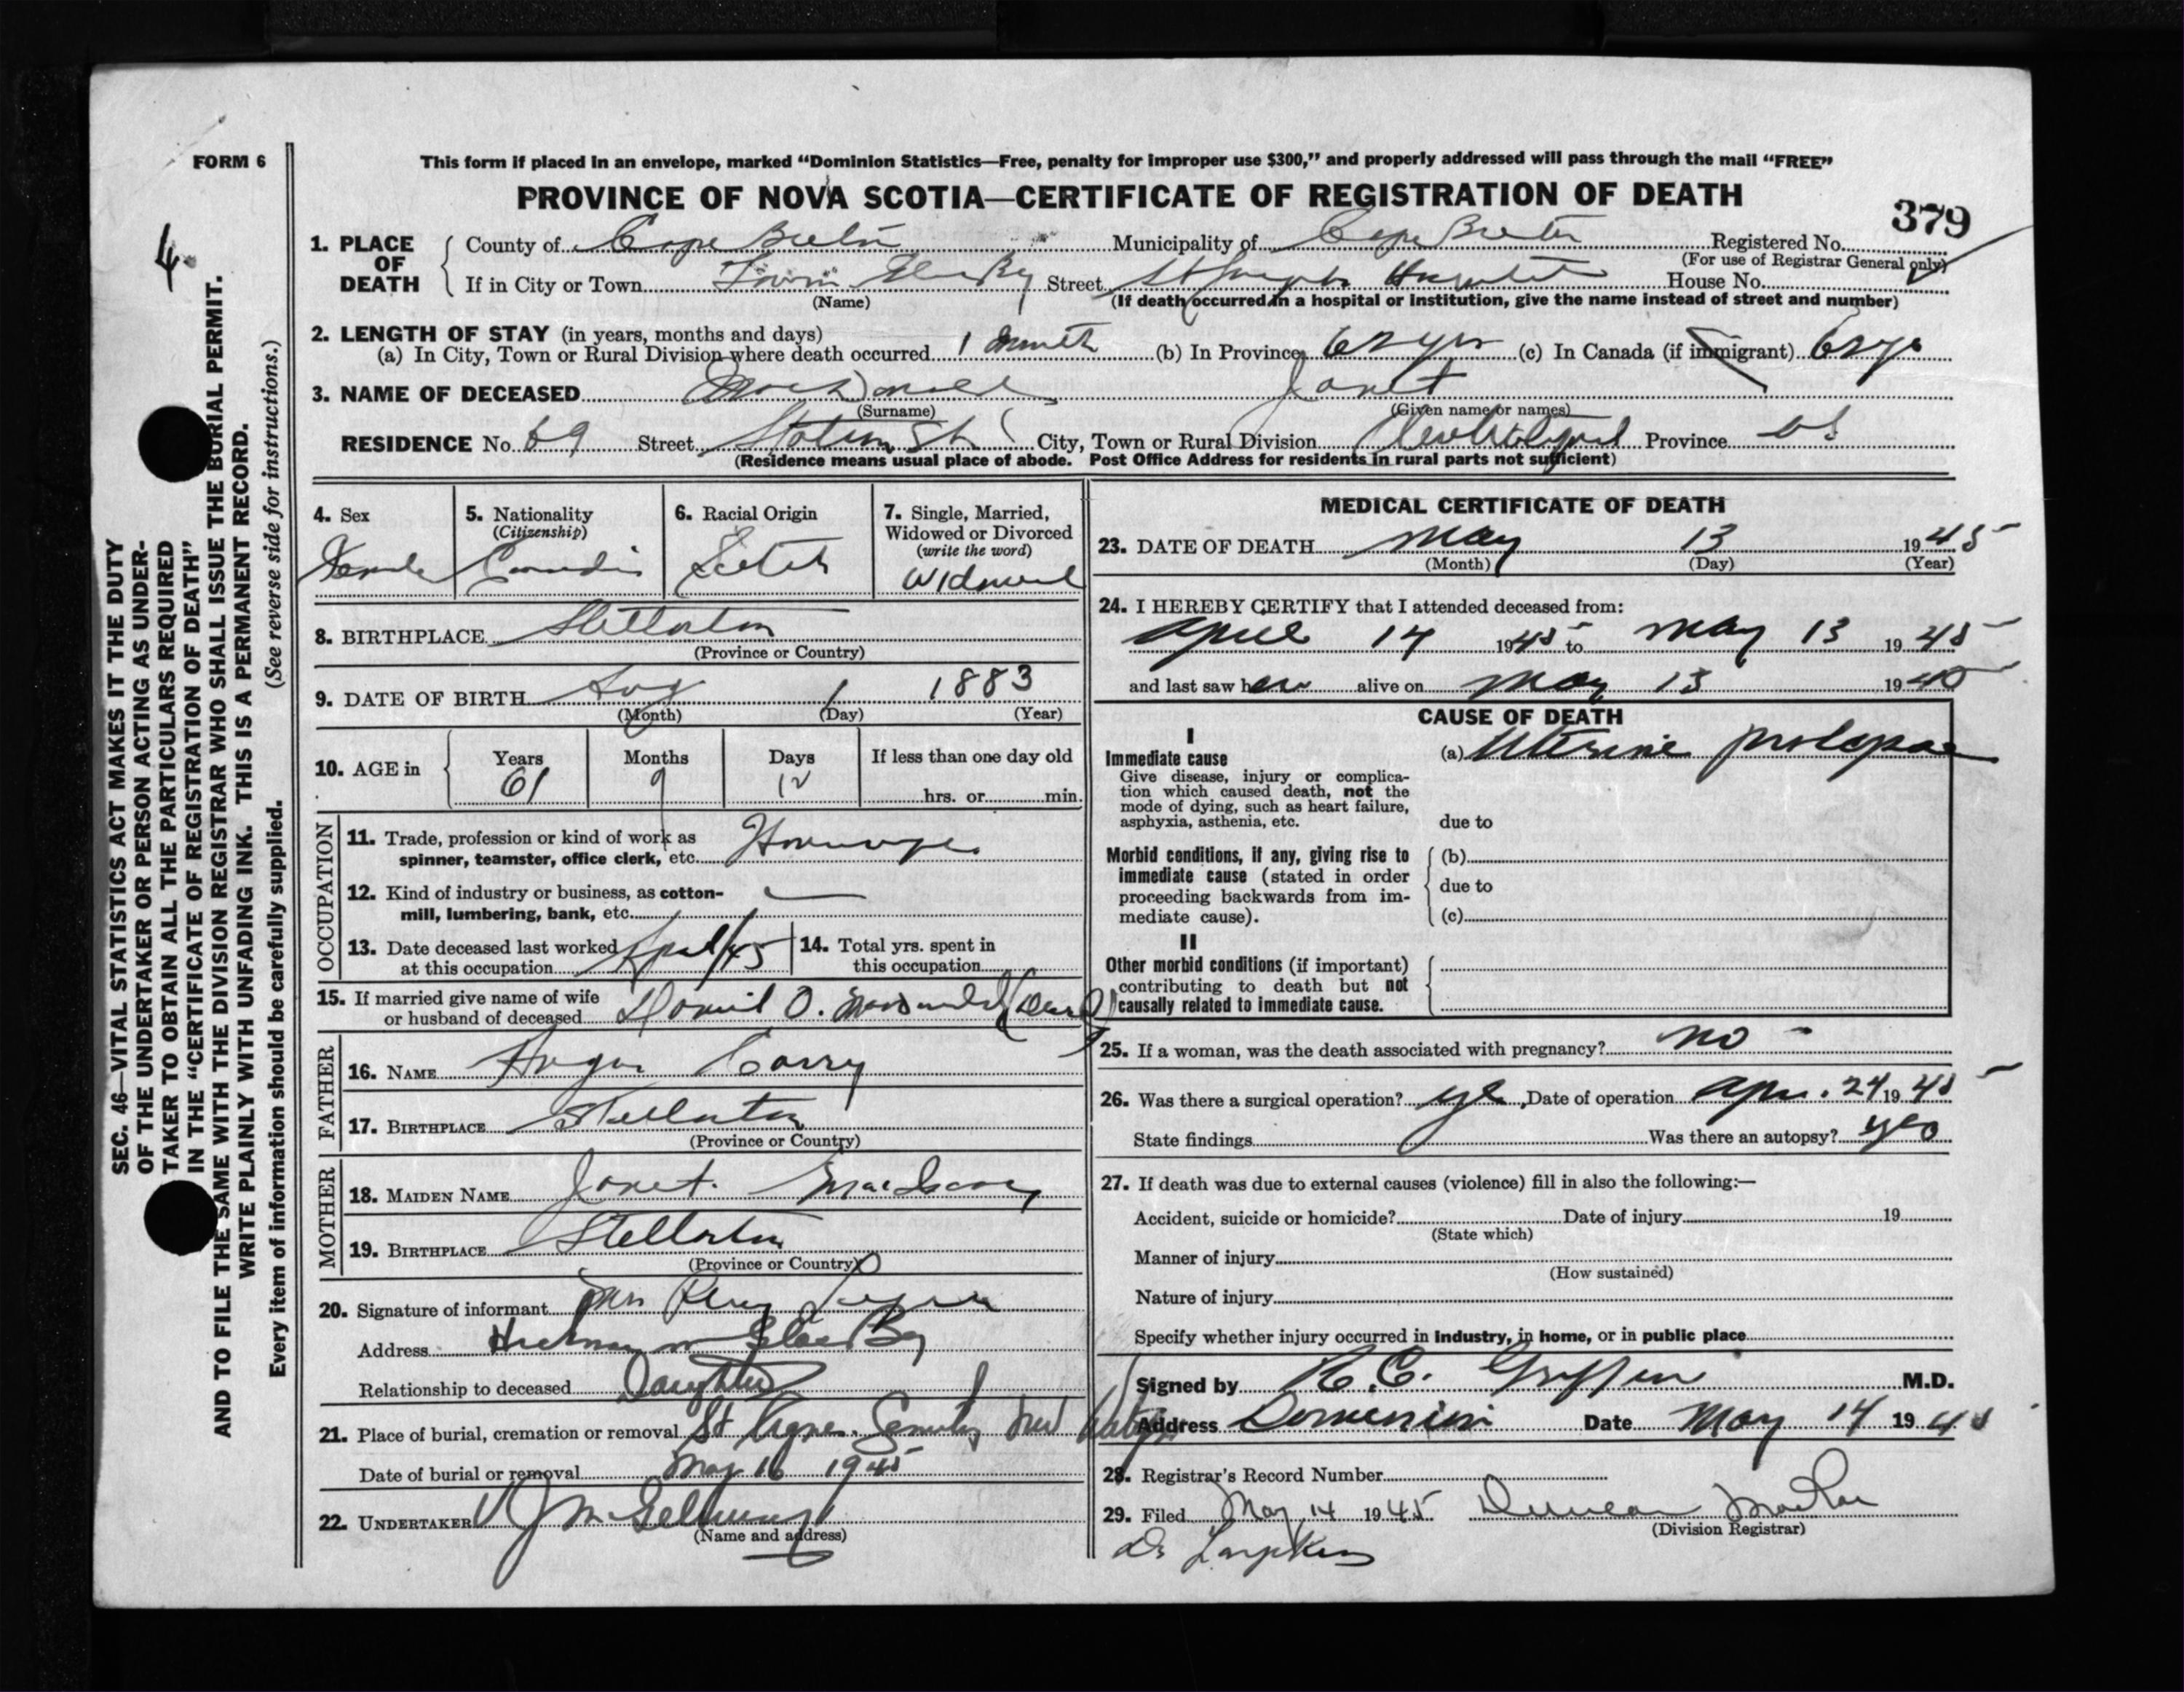 FORM 6
This form if placed in an envelope, marked “Dominion Statistics—Free, penalty for improper use $300,” and properly addressed will pass through the mail “FREE”
PROVINCE OF NOVA SCOTIA—CERTIFICATE OF REGISTRATION OF DEATH
379
4.
SEC. 46—VITAL STATISTICS ACT MAKES IT THE DUTY
OF THE UNDERTAKER OR PERSON ACTING AS UNDER-
TAKER TO OBTAIN ALL THE PARTICULARS REQUIRED
IN THE “CERTIFICATE OF REGISTRATION OF DEATH”
AND TO FILE THE SAME WITH THE DIVISION REGISTRAR WHO SHALL ISSUE THE BURIAL PERMIT.
WRITE PLAINLY WITH UNFADING INK. THIS IS A PERMANENT RECORD.
Every item of information should be carefully supplied. (See reverse side for instructions.)
1. PLACE OF DEATH
County of Cape Breton Municipality of Cape Breton Registered No.
(For use of Registrar General only)
If in City or Town Town Glace Bay Street St Joseph's Hospital House No.
(Name) (If death occurred in a hospital or institution, give the name instead of street and number)
2. LENGTH OF STAY (in years, months and days)
(a) In City, Town or Rural Division where death occurred 1 month (b) In Province 62 yrs (c) In Canada (if immigrant) 62 yrs
3. NAME OF DECEASED MacDonald Janet
(Surname) (Given name or names)
RESIDENCE No. 69 Street Station St City, Town or Rural Division Province NS
(Residence means usual place of abode. Post Office Address for residents in rural parts not sufficient)
4. Sex
Female
5. Nationality
(Citizenship)
Canadian
6. Racial Origin
Scotch
7. Single, Married,
Widowed or Divorced
(write the word)
Widowed
8. BIRTHPLACE Stellarton
(Province or Country)
9. DATE OF BIRTH Aug 1 1883
(Month) (Day) (Year)
10. AGE in
Years Months Days If less than one day old
61 9 12 hrs. or min.
OCCUPATION
11. Trade, profession or kind of work as
spinner, teamster, office clerk, etc.
12. Kind of industry or business, as cotton-
mill, lumbering, bank, etc. —
13. Date deceased last worked
at this occupation April/45
14. Total yrs. spent in
this occupation
15. If married give name of wife
or husband of deceased Daniel O. MacDonald (Dec'd)
FATHER
16. NAME Angus Corry
17. BIRTHPLACE Stellarton
(Province or Country)
MOTHER
18. MAIDEN NAME Janet
19. BIRTHPLACE Stellarton
(Province or Country)
20. Signature of informant Mrs
Address Glace Bay
Relationship to deceased Daughter
21. Place of burial, cremation or removal St Agnes Cemetery New
Date of burial or removal May 16 1945
22. UNDERTAKER
(Name and address)
MEDICAL CERTIFICATE OF DEATH
23. DATE OF DEATH May 13 1945
(Month) (Day) (Year)
24. I HEREBY CERTIFY that I attended deceased from:
April 14 1945 to May 13 1945
and last saw her alive on May 13 1945
CAUSE OF DEATH
I
Immediate cause
Give disease, injury or complica-
tion which caused death, not the
mode of dying, such as heart failure,
asphyxia, asthenia, etc.
(a) Uterine prolapse
due to
Morbid conditions, if any, giving rise to
immediate cause (stated in order
proceeding backwards from im-
mediate cause).
(b)
due to
(c)
II
Other morbid conditions (if important)
contributing to death but not
causally related to immediate cause.
25. If a woman, was the death associated with pregnancy? no
26. Was there a surgical operation? yes Date of operation Apr. 24 1945
State findings Was there an autopsy? yes
27. If death was due to external causes (violence) fill in also the following:—
Accident, suicide or homicide? Date of injury 19
(State which)
Manner of injury
(How sustained)
Nature of injury
Specify whether injury occurred in industry, in home, or in public place
Signed by Griffin M.D.
Address Date May 14 1945
28. Registrar's Record Number
29. Filed May 14 1945 Duncan MacRae
(Division Registrar)